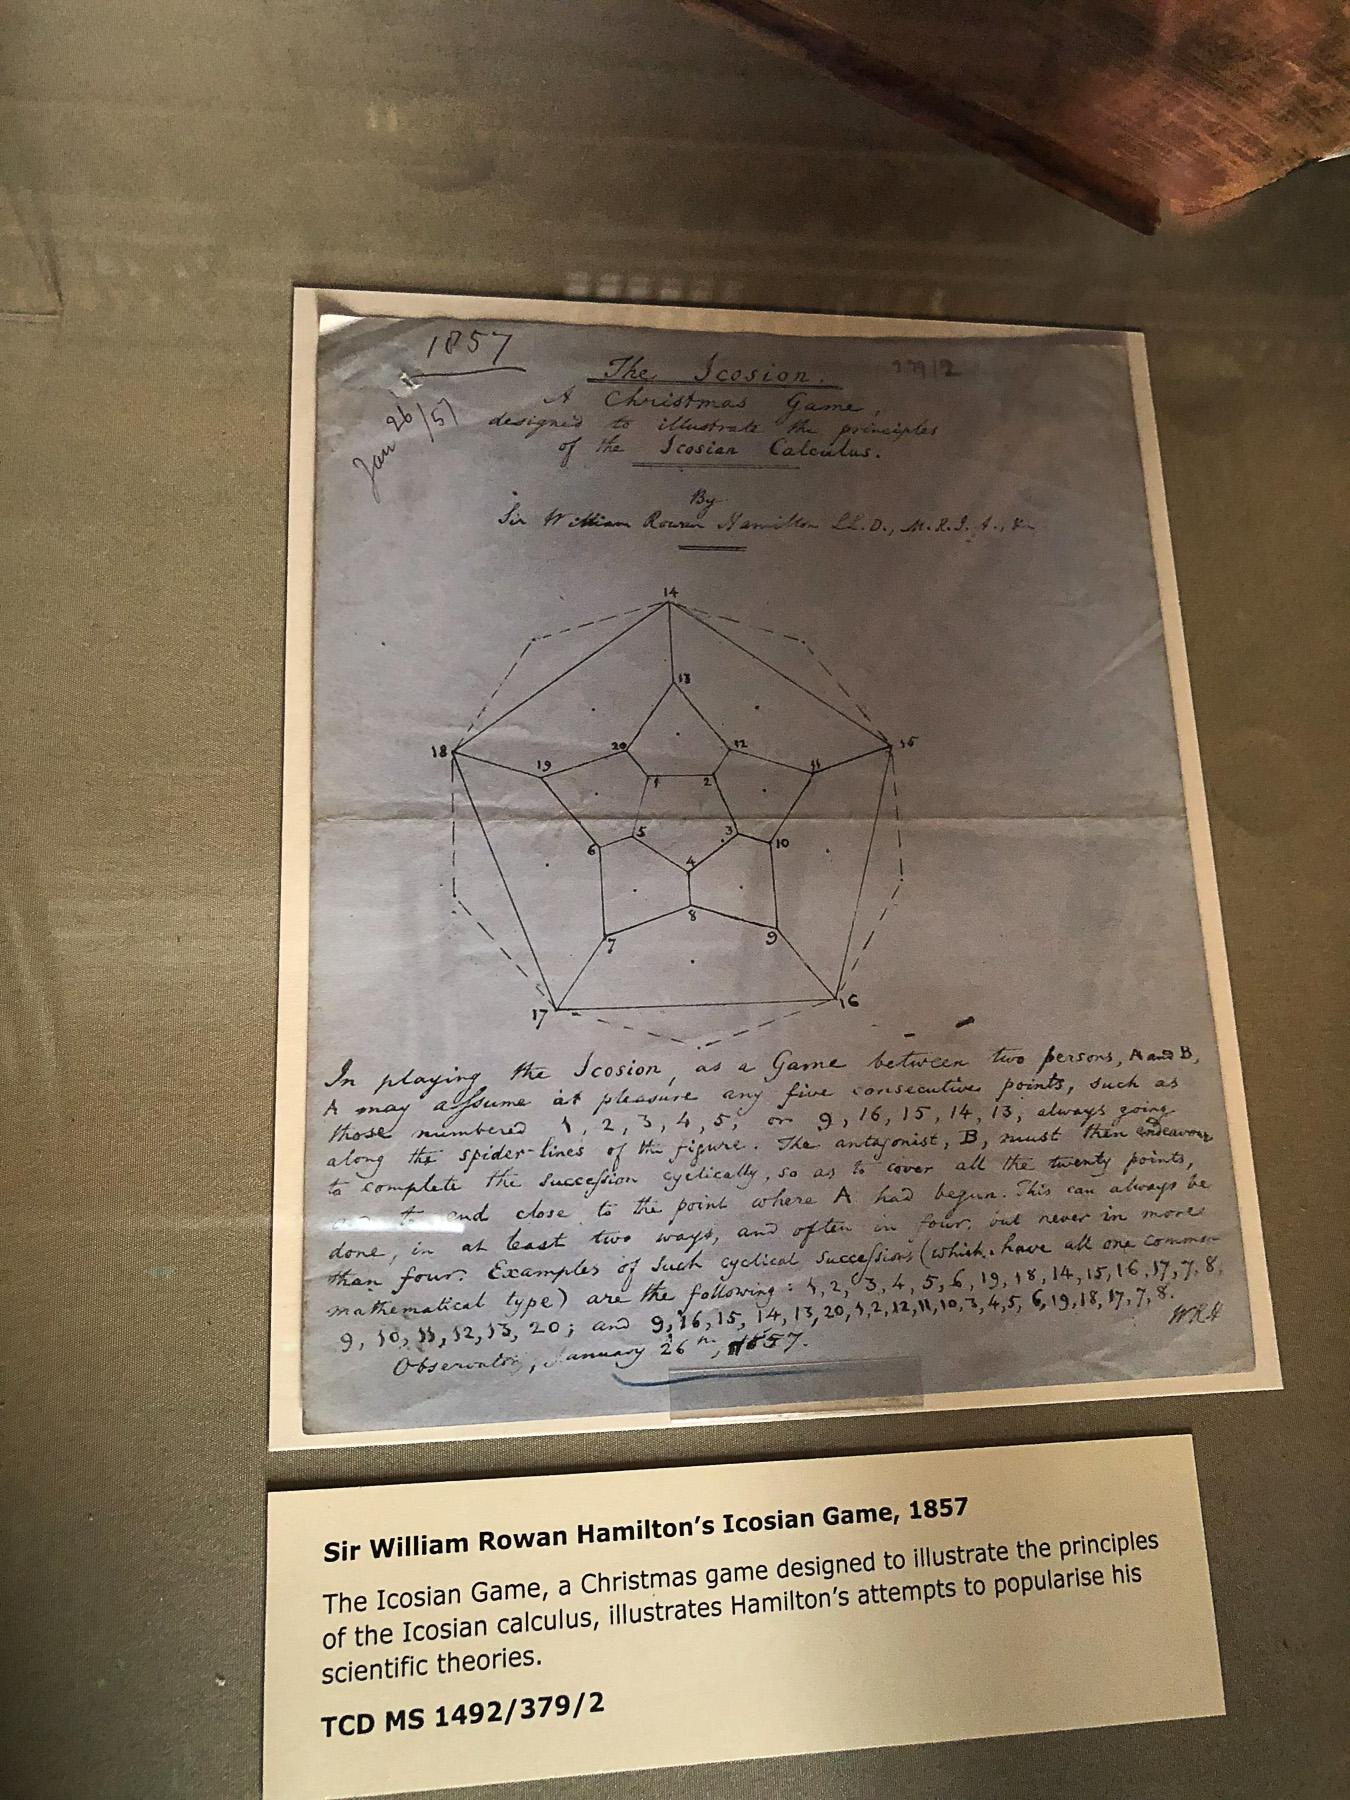 1857
Jan 26/57
The Icosion.
A Christmas Game,
designed to illustrate the principles
of the Icosian Calculus.
By
Sir William Rowan Hamilton LL.D., M.R.I.A., &c
14
13
18
20
12
15
19
11
1
2
5
3
6
10
4
8
7
9
17
16
In playing the Icosion, as a Game between two persons, A and B,
A may assume at pleasure any five consecutive points, such as
those numbered 1, 2, 3, 4, 5, or 9, 16, 15, 14, 13, always going
along the spider-lines of the figure. The antagonist, B, must then endeavour
to complete the succession cyclically, so as to cover all the twenty points,
and to end close to the point where A had begun. This can always be
done, in at least two ways, and often in four, but never in more
than four. Examples of such cyclical successions (which have all one common
mathematical type) are the following: 1, 2, 3, 4, 5, 6, 19, 18, 14, 15, 16, 17, 7, 8,
9, 10, 11, 12, 13, 20; and 9, 16, 15, 14, 13, 20, 1, 2, 12, 11, 10, 3, 4, 5, 6, 19, 18, 17, 7, 8.
WRH
Observatory, January 26th, 1857.
Sir William Rowan Hamilton's Icosian Game, 1857
The Icosian Game, a Christmas game designed to illustrate the principles
of the Icosian calculus, illustrates Hamilton's attempts to popularise his
scientific theories.
TCD MS 1492/379/2